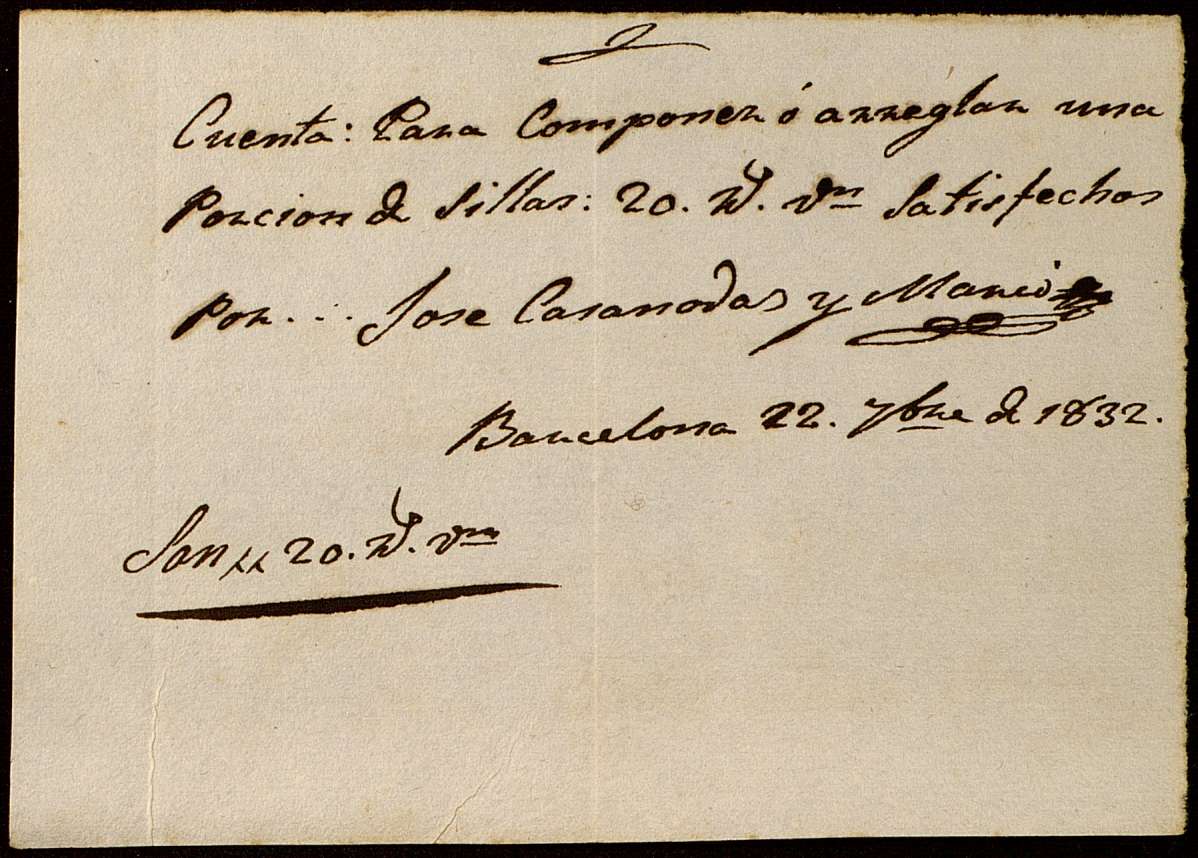 Cuenta: Para Componer ó arreglar una
Porcion de Sillas: 20. rs. vn Satisfechos
Por... Jose Casarrodas y
Barcelona 22. 7bre de 1832.
Son 20. rs. vn